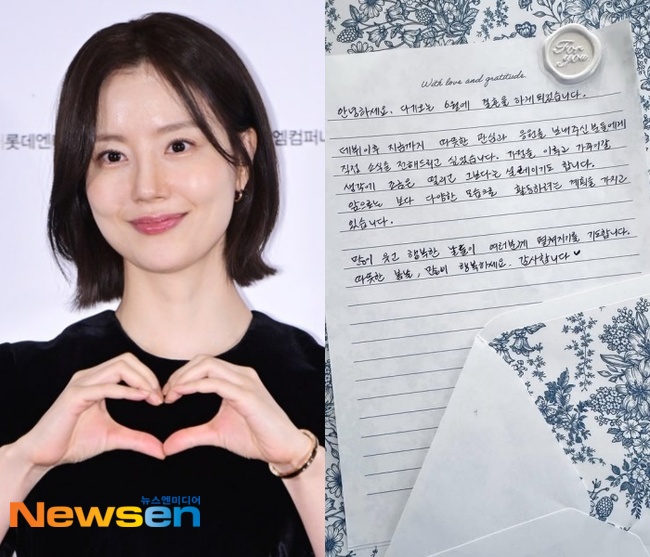 롯데엔
엠컴퍼니
뉴스엔미디어
Newsen
For you
With love and gratitude.
안녕하세요. 다가오는 6월에 결혼을 하게 되었습니다.
데뷔이후 지금까지 따뜻한 관심과 응원을 보내주신 분들에게
직접 소식을 전해드리고 싶었습니다. 가정을 이루고 가꾸어갈
생각에 조금은 떨리고 그보다는 설레이기도 합니다.
앞으로는 보다 다양한 모습으로 활동하려는 계획을 가지고
있습니다.
많이 웃고 행복한 날들이 여러분께 펼쳐지기를 기도합니다.
따뜻한 봄날, 많이 행복하세요. 감사합니다♥